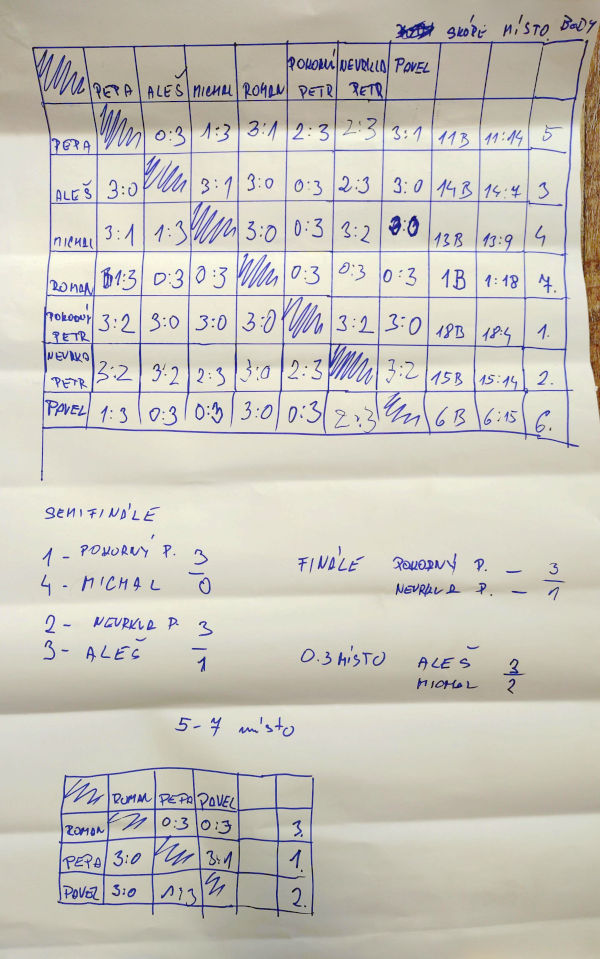 SKÓRE MÍSTO BODY
PEPA ALEŠ MICHAL ROMAN POKORNÝ PETR NEVRKLA PETR PAVEL
PEPA 0:3 1:3 3:1 2:3 2:3 3:1 11B 11:14 5
ALEŠ 3:0 3:1 3:0 0:3 2:3 3:0 14B 14:7 3
MICHAL 3:1 1:3 3:0 0:3 3:2 3:0 13B 13:9 4
ROMAN 1:3 0:3 0:3 0:3 0:3 0:3 1B 1:18 7.
POKORNÝ PETR 3:2 3:0 3:0 3:0 3:2 3:0 18B 18:4 1.
NEVRKLA PETR 3:2 3:2 2:3 3:0 2:3 3:2 15B 15:14 2.
PAVEL 1:3 0:3 0:3 3:0 0:3 2:3 6B 6:15 6.
SEMIFINÁLE
1 - POKORNÝ P. 3
4 - MICHAL 0
2 - NEVRKLA P. 3
3 - ALEŠ 1
FINÁLE POKORNÝ P. — 3
NEVRKLA P. — 1
O.3MÍSTO ALEŠ 3
MICHAL 2
5-7 místo
ROMAN PEPA PAVEL
ROMAN 0:3 0:3 3.
PEPA 3:0 3:1 1.
PAVEL 3:0 1:3 2.